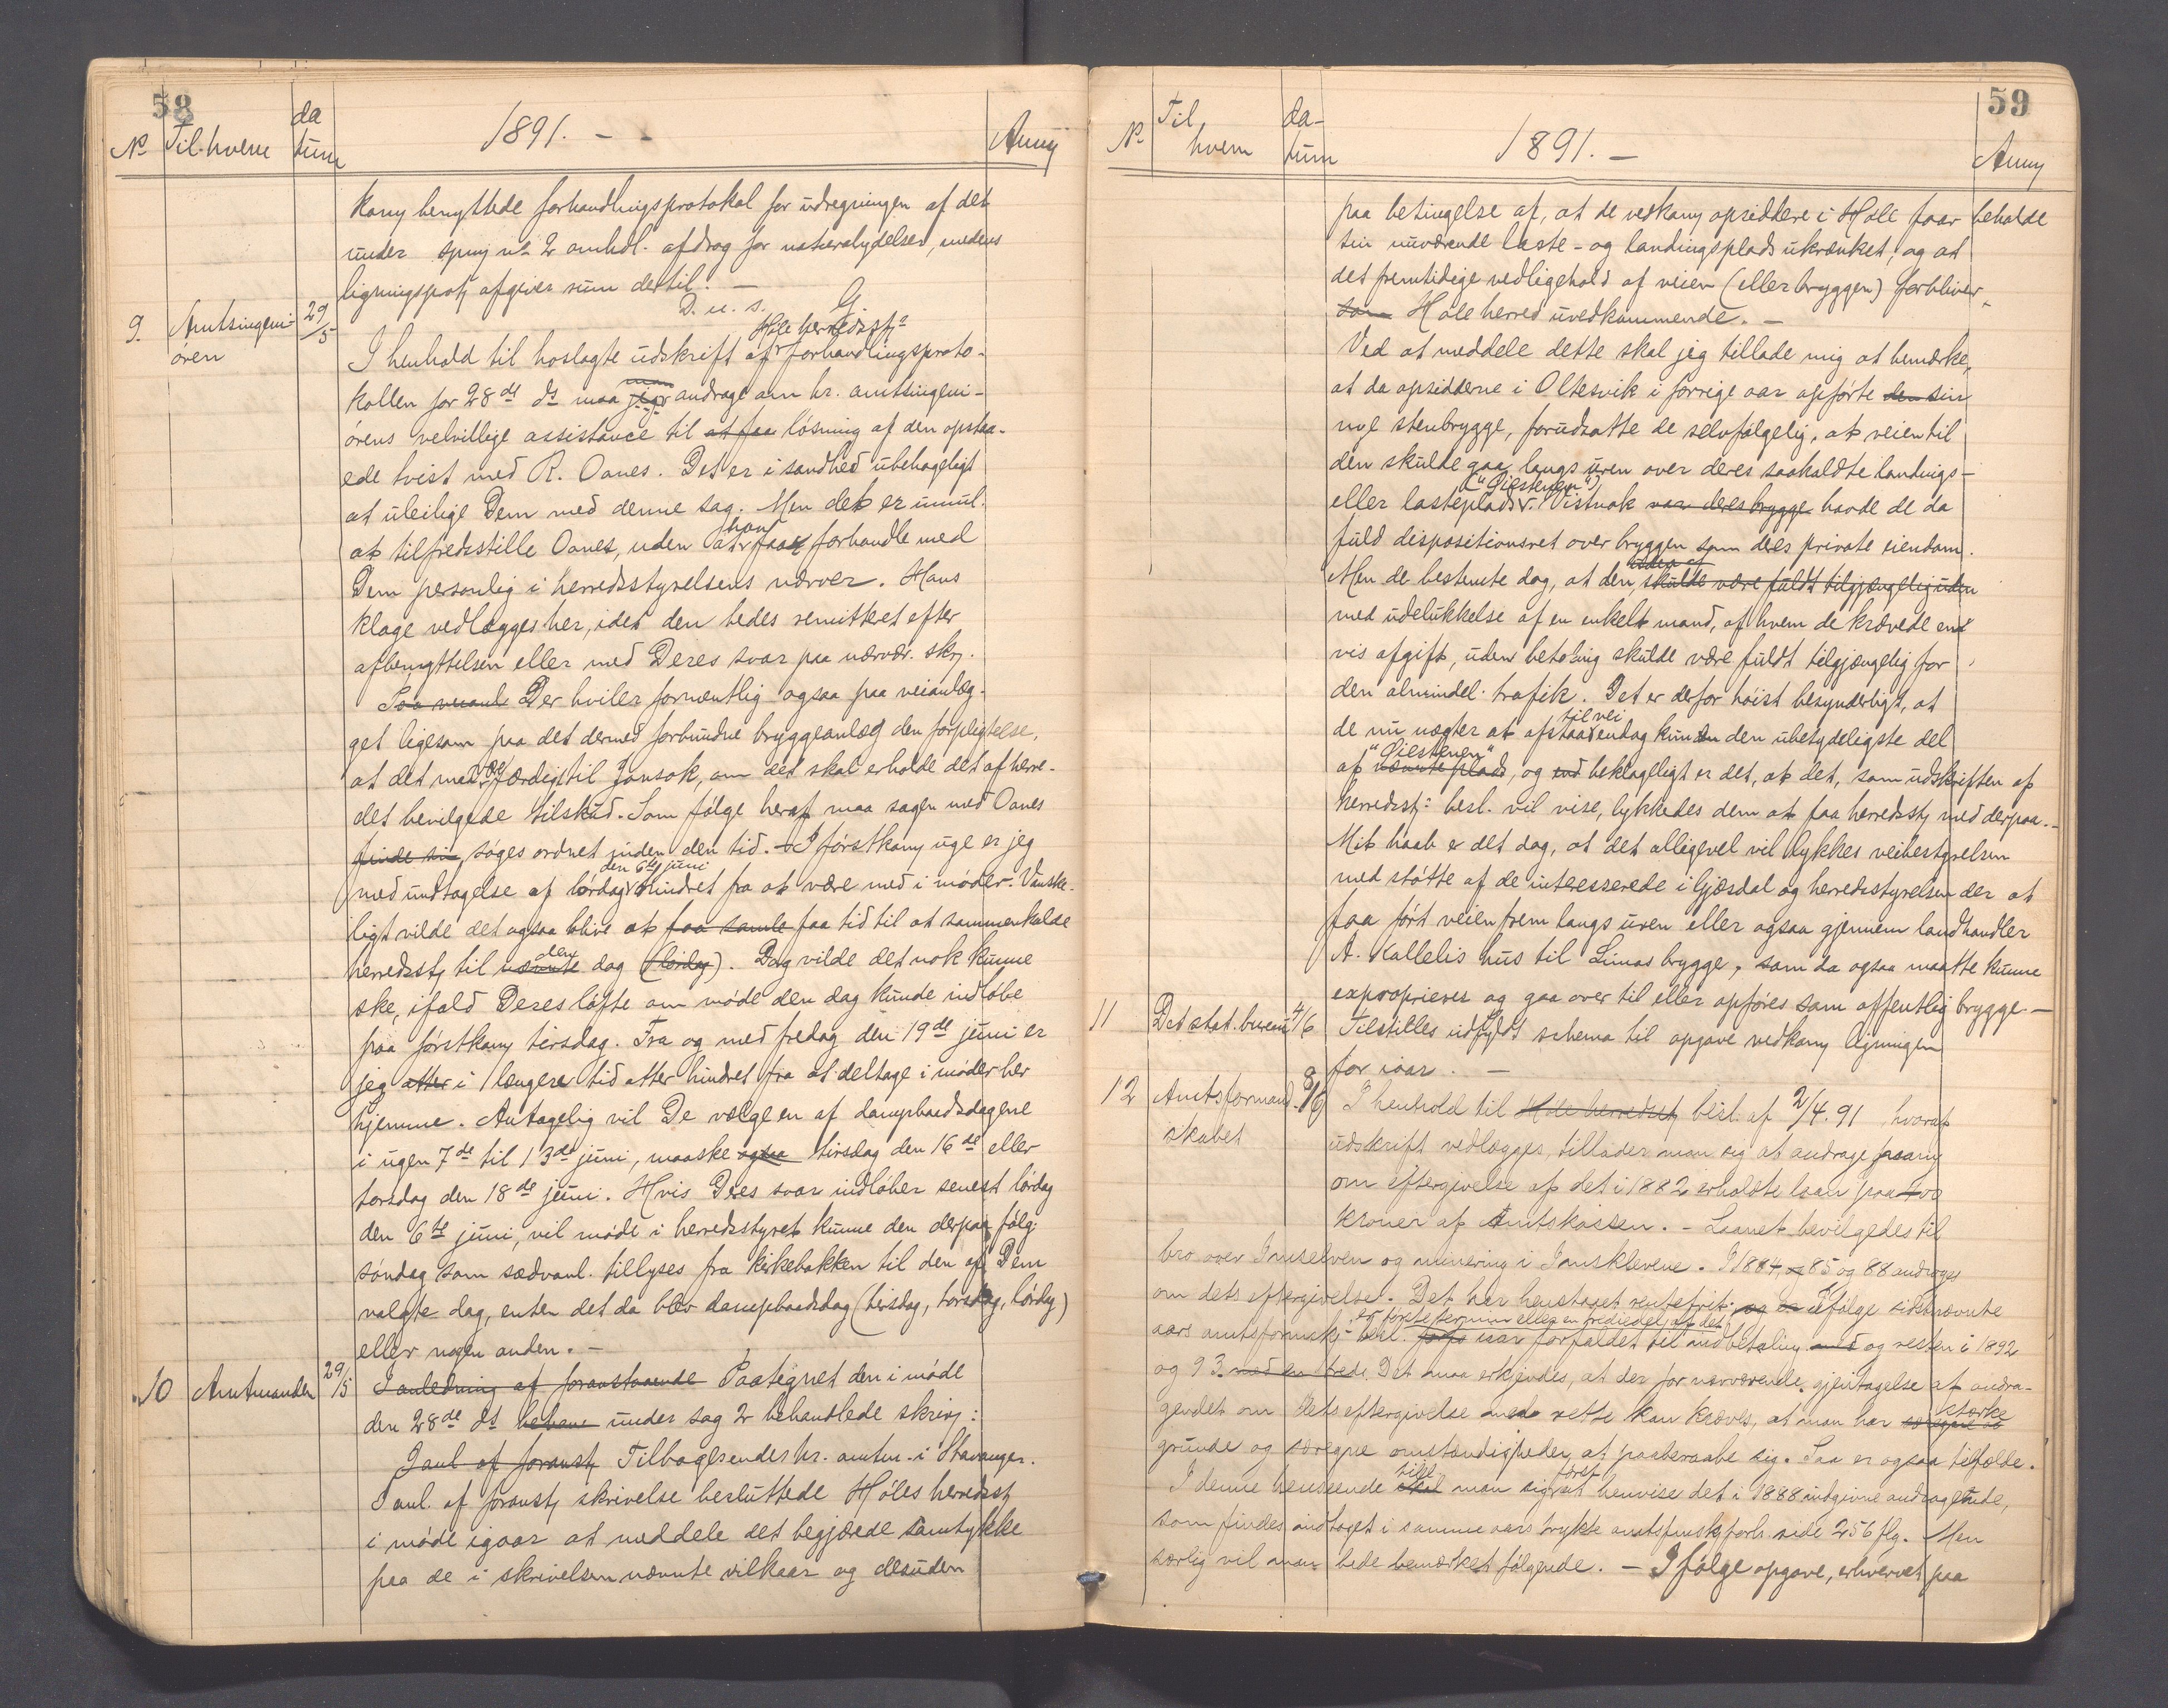 58
No Til hvem datum 1891. - - Anmj
komj benyttede forhandlingsprotokol for udregningen af det
under spmj no 2 omhdl. afdrag for naturalydelser, medens
ligningsprotj afgiver sum dertil. —
D. u. s. G.
9. Amtsingeniören 29/5
I henhold til hoslagte udskrift af Höle herredsstjs forhandlingsproto-
kollen for 28de ds maa man andrage om hr. amtsingeni-
örens velvillige assistance til at faa lösning af den opstaa-
ede tvist med R. Oanes. Det er i sandhed ubehageligt
at uleilige Dem med denne sag. Men det er umul.
at tilfredsstille Oanes, uden at han faar forhandle med
Dem personlig i herredsstyrelsens nærvær. Hans
klage vedlægges her, idet den bedes remitteret efter
afbenyttelsen eller med Deres svar paa nærvær. skrj.
Der hviler formentlig ogsaa paa veianlæg-
get ligesom paa det dermed forbundne bryggeanlæg den forpligtelse,
at det maa være færdigt til Jonsok, om det skal erholde det af herre-
det bevilgede tilskud. Som fölge heraf maa sagen med Oanes
finde sin söges ordnet inden den tid. - I förstkomj uge er jeg
med undtagelse af lördag den 6te juni hindret fra at være med i möder. Vanske-
ligt vilde det ogsaa blive at faa samle faa tid til at sammenkalde
herredsstj til nævnte den dag (lördag). Dog vilde det nok kunne
ske, ifald Deres löfte om möde den dag kunde indlöbe
paa förstkomj tirsdag. Fra og med fredag den 19de juni er
jeg atter i længere tid atter hindret fra at deltage i möder her
hjemme. Antagelig vil De vælge en af dampbaadsdagene
i ugen 7de til 13de juni, maaske ogsaa tirsdag den 16de eller
torsdag den 18de juni. Hvis Deres svar indlöber senest lördag
den 6te juni, vil möde i herredsstyret kunne den derpaa fölg.
söndag som sædvanl. tillyses fra kirkebakken til den af Dem
valgte dag, enten det da blev dampbaadsdag (tirsdag, torsdag, lördag)
eller nogen anden. —
10 Amtmanden 29/5
I anledning af foranstaaende Paategnet den i möde
den 28de ds under sag 2 behandlede skrivj:
I anl. af foranstj Tilbagesendes hr. amtm. i Stavanger.
I anl. af foranstj skrivelse besluttede Höles herredsstj
i möde igaar at meddele det begjærede samtykke
paa de i skrivelsen nævnte vilkaar og desuden
59
No Til hvem datum 1891. — Anmj
paa betingelse af, at de vedkomj opsiddere i Höle faar beholde
sin nuværende laste- og landingsplads ukrænket, og at
det fremtidige vedligehold af veien (eller bryggen) forbliver
som Höle herred uvedkommende. —
Ved at meddele dette skal jeg tillade mig at bemærke,
at da opsidderne i Oltesvik i forrige aar opförte den sin
nye stenbrygge, forudsatte de selvfölgelig, at veien til
den skulde gaa langs uren over deres saakaldte landings-
eller lasteplads ("Giestenen"). Vistnok var deres brygge havde de da
fuld dispositionsret over bryggen som deres private eiendom.
Men de bestemte dog, at den, skulde være fuldt tilgjængelig uden
med udelukkelse af en enkelt mand, af hvem de krævede en
vis afgift, uden betaling skulde være fuldt tilgjængelig for
den almindel. trafik. Det er derfor höist besynderligt, at
de nu nægter at afstaa til vei endog kun den ubetydeligste del
af "Giestenen" nævnte plads, og end beklageligt er det, at det, som udskriften af
herredsstjs besl. vil vise, lykkedes dem at faa herredsstj med derpaa. -
Mit haab er det dog, at det alligevel vil lykkes veibestyrelsen
med stötte af de interesserede i Gjæsdal og herredsstyrelsen der at
faa fört veien frem langs uren eller ogsaa gjennem landhandler
A. Kallelis hus til Limas brygge, som da ogsaa maatte kunne
exproprieres og gaa over til eller opföres som offentlig brygge. —
11 Det stat. bureau 4/6 Tilstilles udfyldt schema til opgave vedkomj ligningen
for iaar. —
12 Amtsformandskabet 8/6 I henhold til Höle herredsstj besl. af 2/4. 91 hvoraf
udskrift vedlægges, tillader man sig at andrage paany
om eftergivelse af det i 1882 erholdte laan paa 400
kroner af Amtskassen. - Laanet bevilgedes til
bro over Imselven og minering i Imsklevene. I 1884, 85 og 88 androges
om dets eftergivelse. Det har henstaaet rentefrit og ifölge sidstnævnte
aars amtsformskj - besl. er förste termin eller en trediedel af det iaar forfaldet til indbetaling med og resten i 1892
og 93. Det maa erkjendes, at der for nærværende gjentagelse af andra-
gendet om dets eftergivelse med rette kan kræves, at man har stærke
grunde og særegne omstændigheder at paaberaabe sig. Saa er ogsaa tilfælde.
I denne henseende vil man först henvise det i 1888 indgivne andragende,
som findes indtaget i samme aars trykte amtsfmskj forh. side 256 flg. Men
særlig vil man bede bemærket fölgende. — Ifölge opgave, erhvervet paa